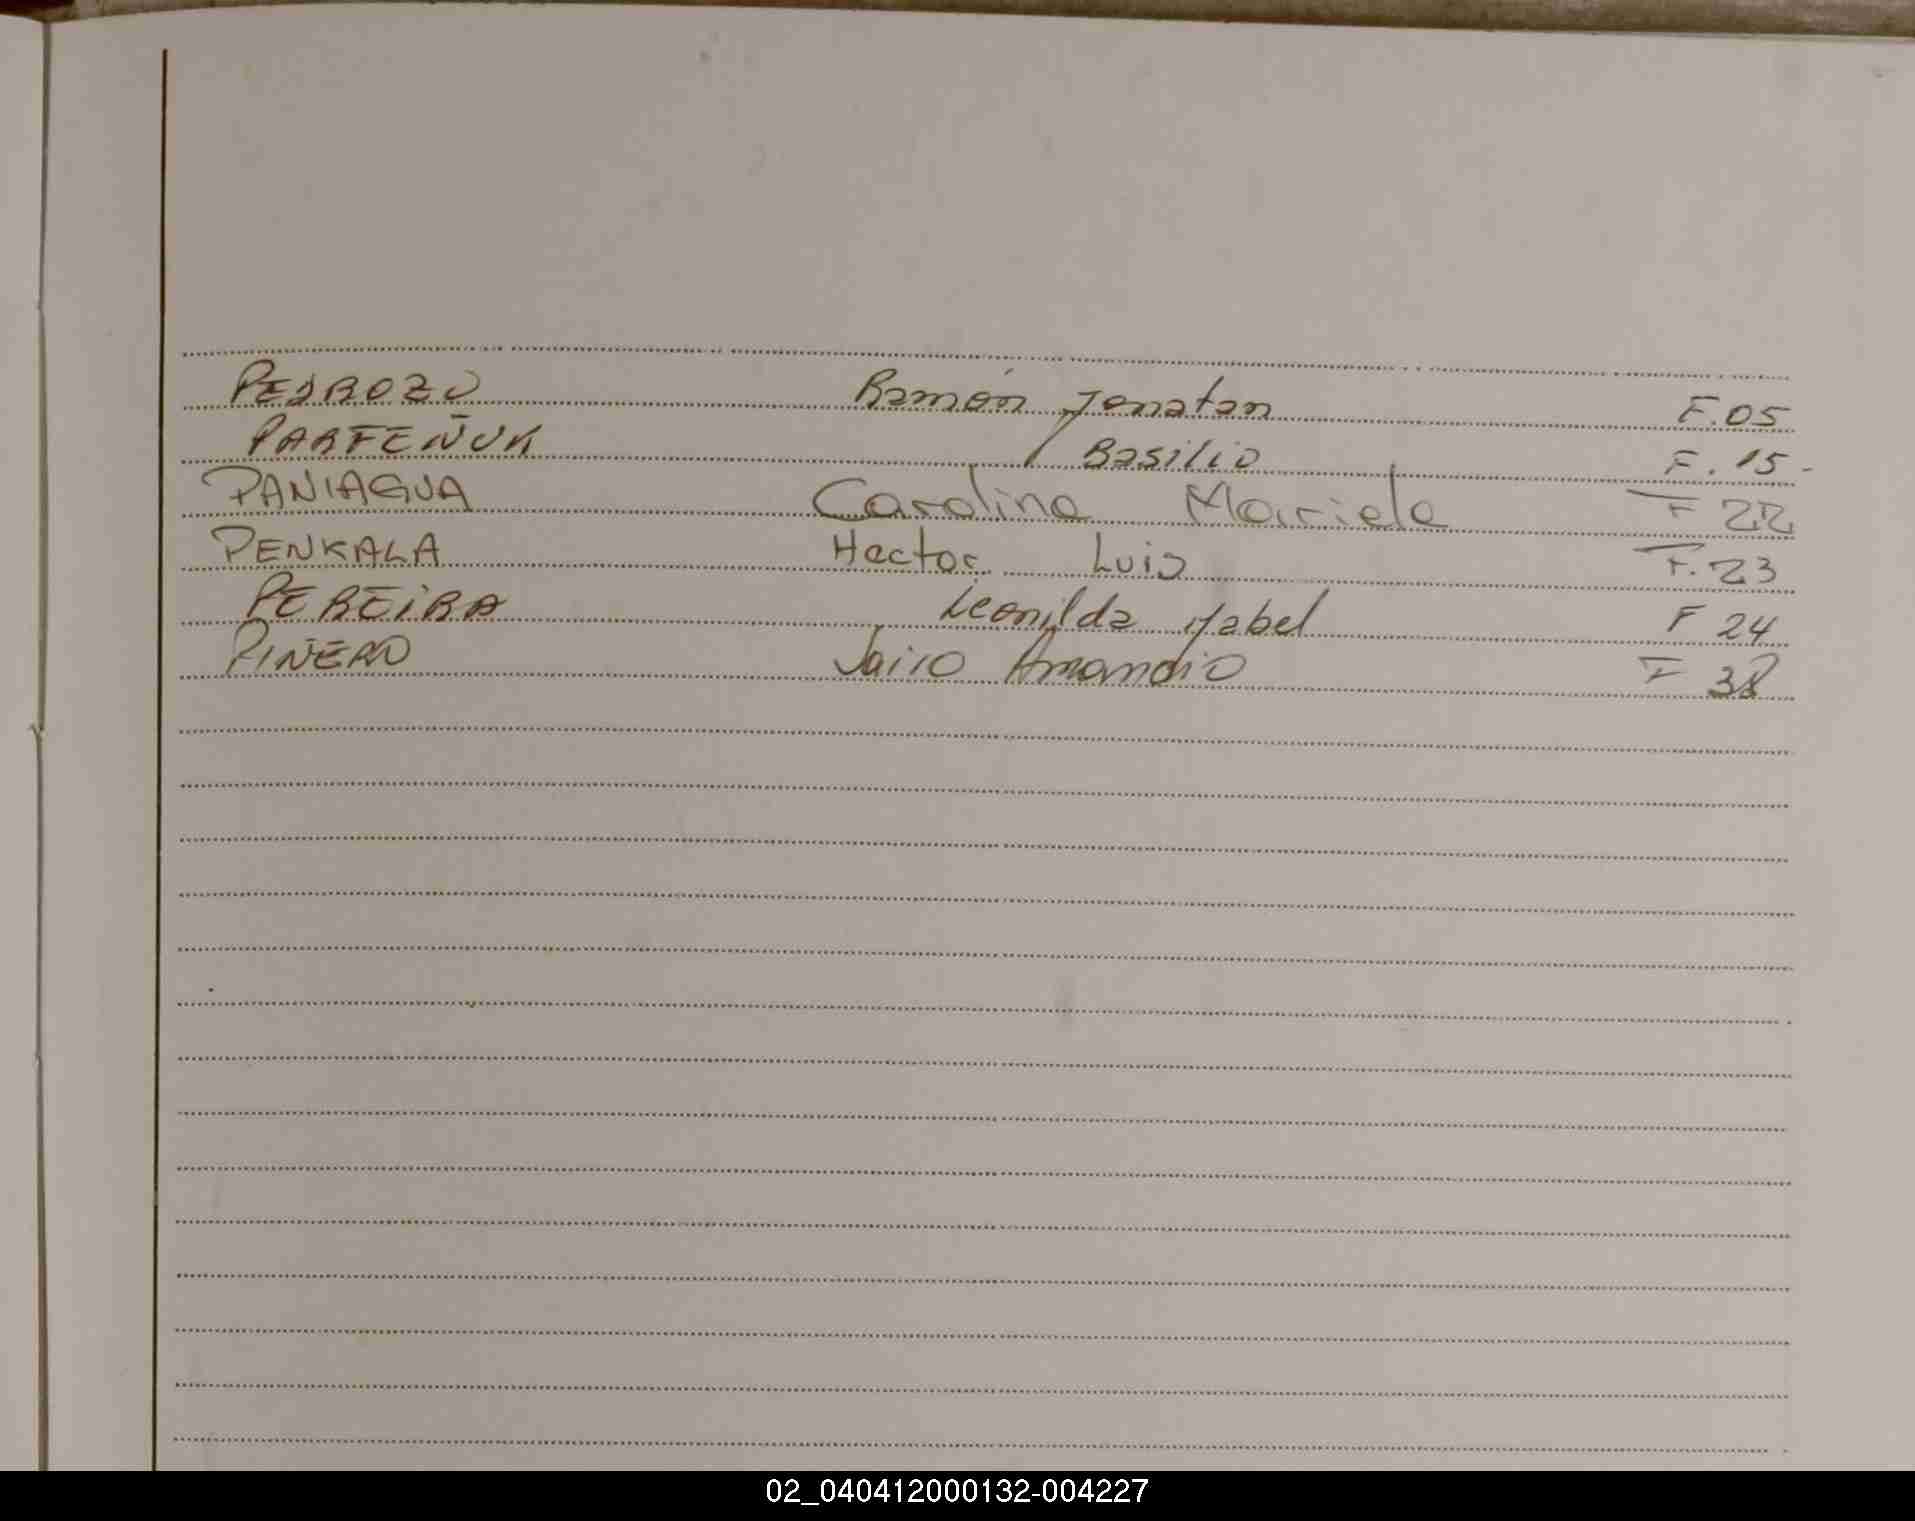 PEDROZO Ramón Jonatan F.05
PARFEÑUK Basilio F.15-
PANIAGUA Carolina Mariela F 22
PENKALA Hector Luis F.23
PEREIRA Leonilda Mabel F 24
PIÑERO Jairo Amancio F 38
02_040412000132-004227